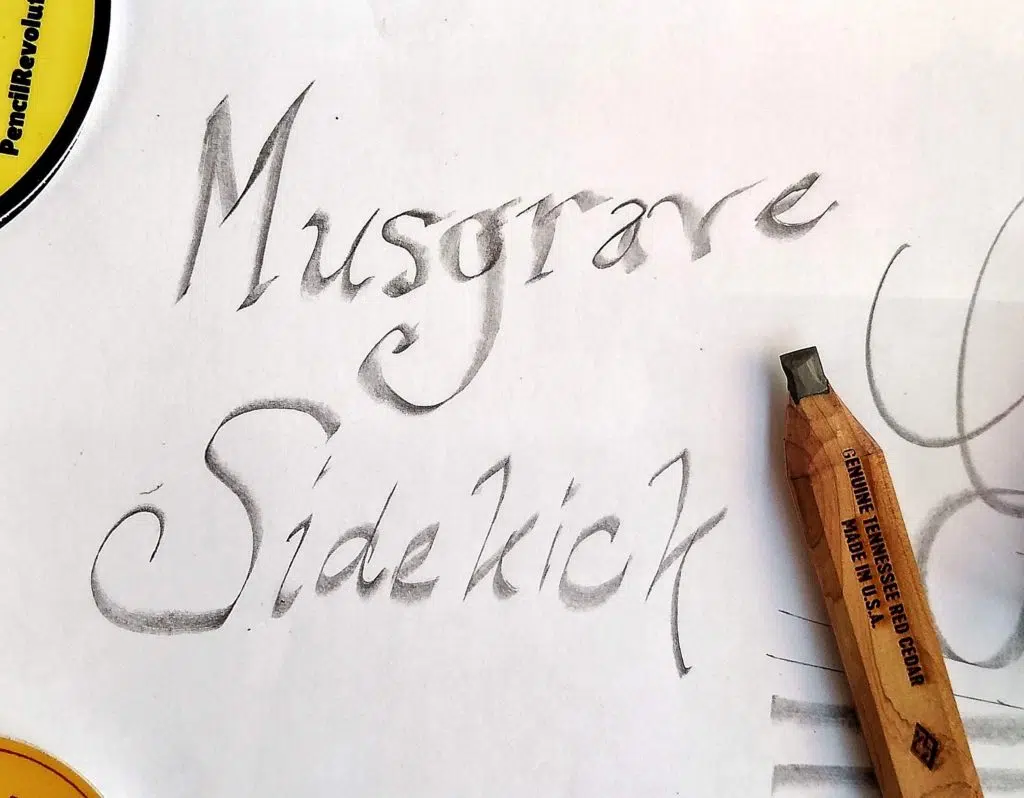 PencilRevolut
Musgrave
Sidekick
GENUINE TENNESSEE RED CEDAR
MADE IN U.S.A.